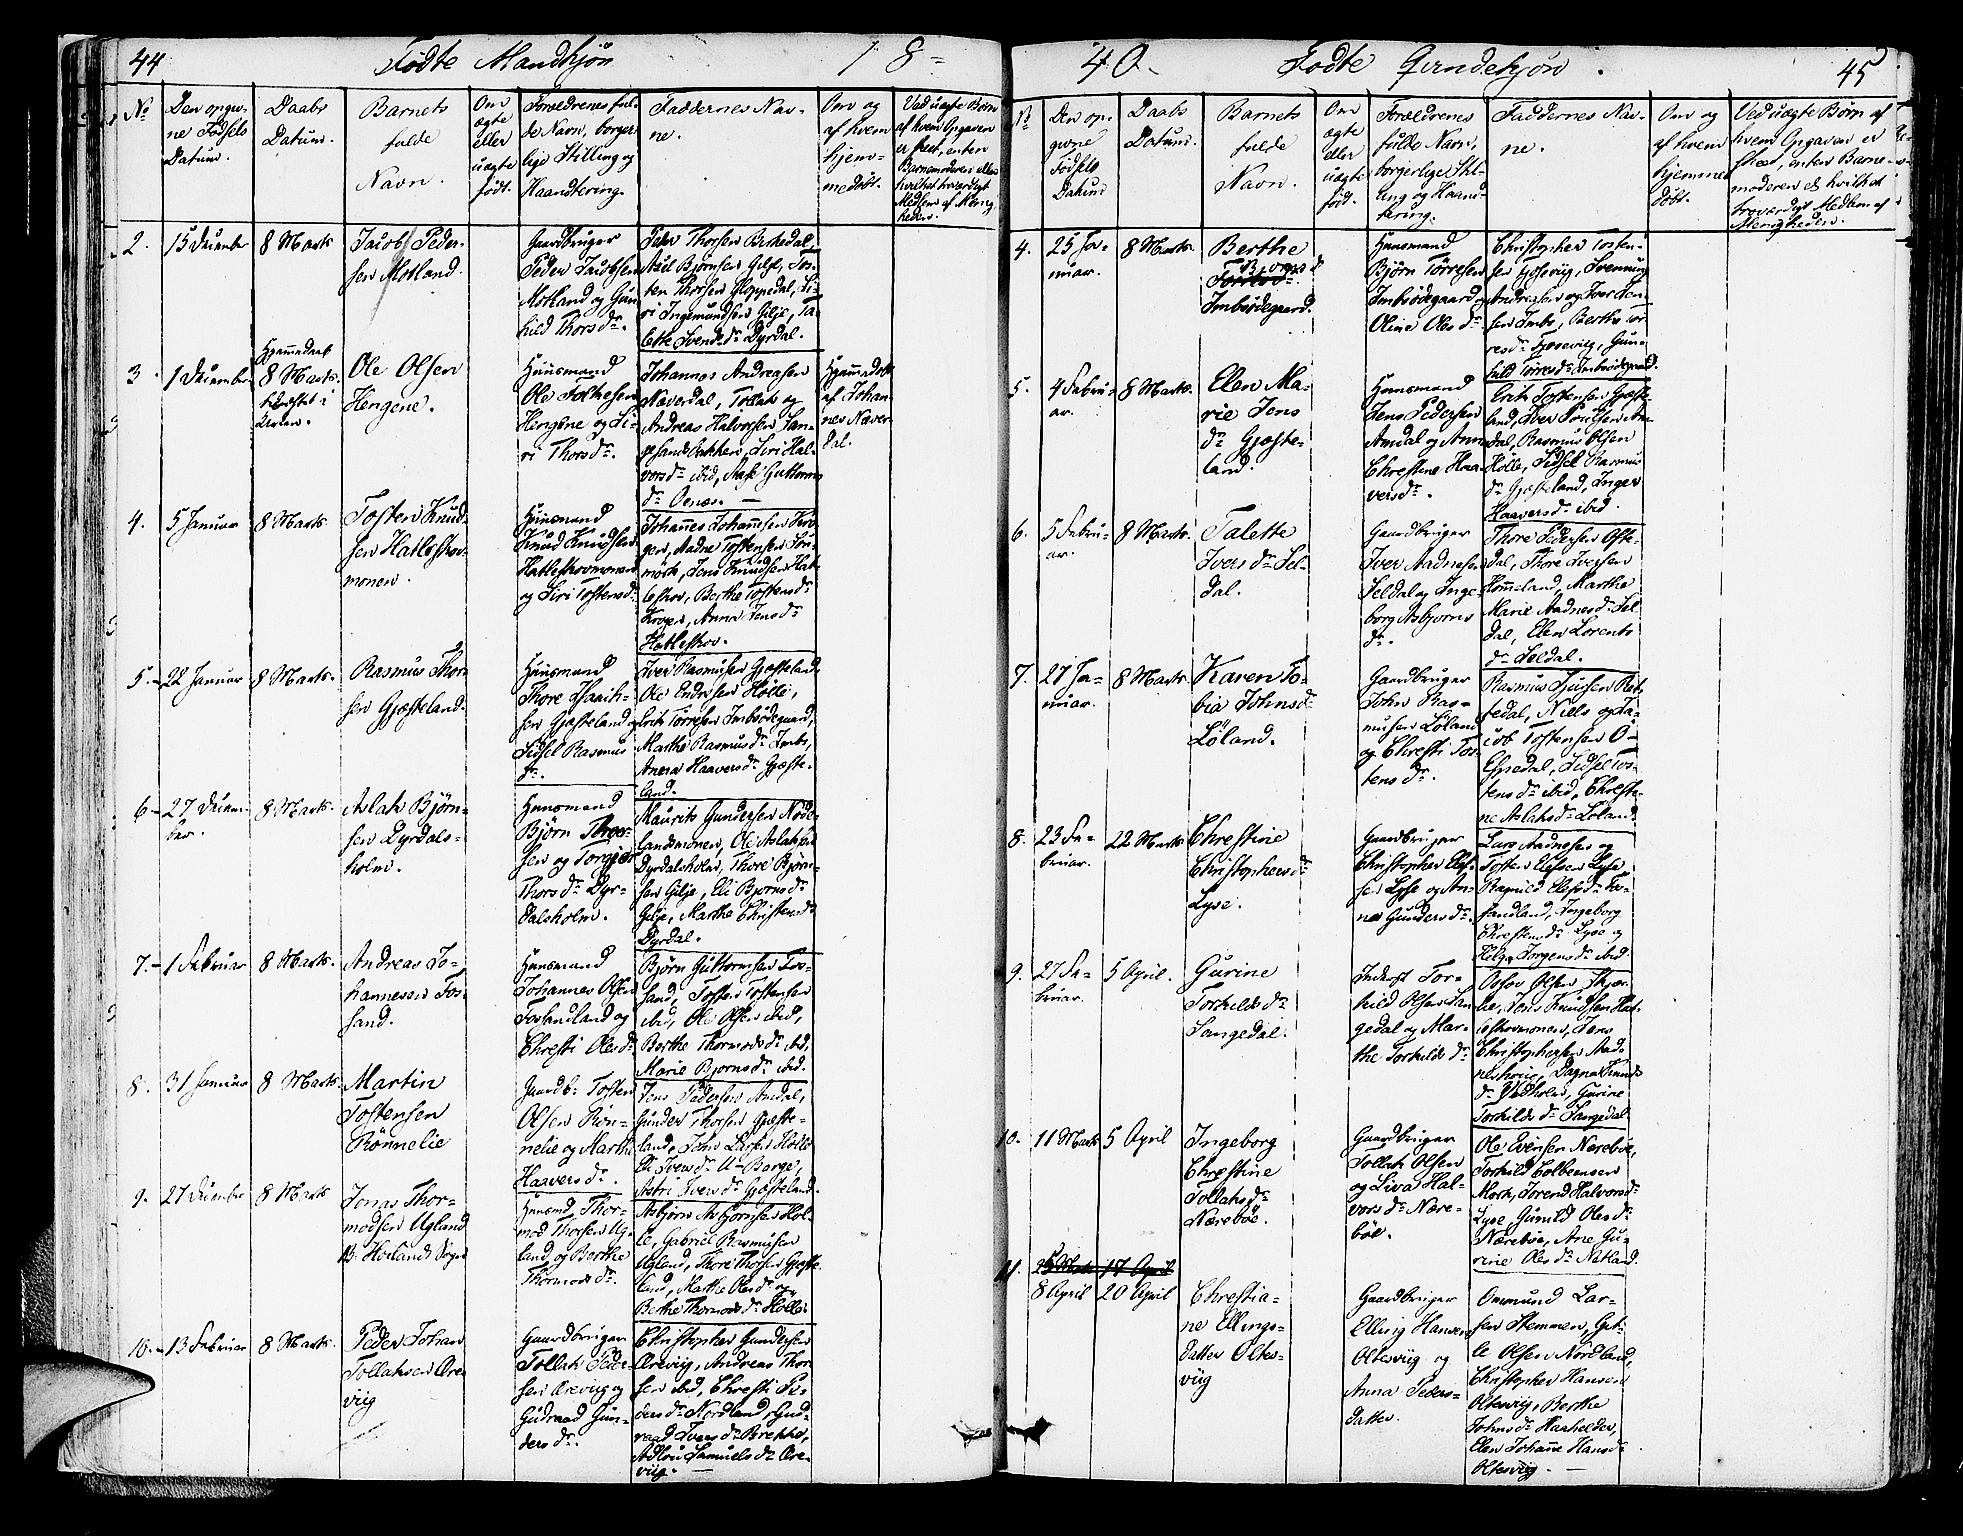 44 Fødte Mandkjøn 18
No
Den opgivne Fødsels Datum.
Daabs Datum.
Barnets fulde Navn.
Om ægte eller uægte født.
Forældrenes fulde Navn, borgerlige Stilling og Haandtering.
Faddernes Navne.
Om og af hvem hjemmedøbt.
Ved uægte Børn af hvem Opgaven er skeet, enten Barnemoderen eller hvilket troværdigt Medlem af Menigheden.
2. 15 December
8 Marts
Jacob Peder-
sen Motland.
Gaardbruger
Peder Jacobsen
Motland og Gun-
hild Thorsdr.
Peder Thorsen
Axel Bjørnsen Gilje, Tos-
ten Thorsen Gloppedal, Si-
ri Ingemundsdr Gilje, Ta-
lette Svendsdr Dyrdal.
3. 1 December
Hjemmedøbt
8 Marts
Ole Olsen
Hengene.
Huusmand
Ole
Hengene og Si-
ri Thorsdr.
Johannes Andreasen
Næverdal, Tollak og
Andreas Halvorsen
Siri Hal-
vorsdr ibid,
dr Oenæs.
Hjemmedøbt
af Johan-
nes Næver-
dal.
4. 5 Januar
8 Marts
Tosten Knud-
sen Hatleskov-
monen.
Huusmand
Knud Knudsen
Hatleskovmonen
og Siri Tostensdr.
Johannes Johannesen
Aadne Tostensen
Jens Knudsen Hat-
leskov, Berthe Tostensdr
Anna Jensdr
Hatleskov.
5. 22 Januar
8 Marts.
Rasmus Thor-
sen Gjæsteland.
Huusmand
Thore
sen Gjæsteland og
Sidsel Rasmus
dr.
Iver Rasmusen Gjæsteland,
Ole Endresen Hølle,
Erik Tørresen Imbsödegaard,
Marthe Rasmusdr Imbs,
Haaversdr Gjæste-
land.
6. 27 Decem-
ber.
8 Marts
Aslak Bjørn-
sen Dyrdals-
holm.
Huusmand
Bjørn Thor-
sen og
Thorsdr Dyr-
dalsholm.
Maurits Gundersen Nøde-
landsmonen, Ole Aslaksen
Dyrdalsholm, Thore Bjørn-
sen Gilje, Eli Bjørnsdr
Gilje, Marthe Christensdr
Dyrdal.
7. 1 Februar
8 Marts
Andreas Jo-
hannessen Fos-
sand.
Huusmand
Johannes Olsen
Fossandland og
Chresti Olesdr
Bjørn Guttormsen Fos-
sand, Tosten Tostensen
ibid, Ole Olsen ibid,
Berthe Thormodsdr ibid,
Marie Bjørnsdr ibid.
8. 31 Januar
8 Marts.
Martin
Tostensen
Rönnelie
Gaardb: Tosten
Olsen Rön-
nelie og Marthe
Haaversdr.
Jens Pedersen Amdal,
Gunder Thorsen Gjæste-
land, John Larsen Hølle
Iversdr
Astri Iversdr Gjæsteland.
9. 27 December
8 Marts
Jonas Thor-
modsen Ugland
Høiland Sogn
Huusmd Thor-
mod Thorsen Ug-
land og Berthe
Thormodsdr.
Asbjørn Asbjørnsen Høl-
le, Gabriel Rasmusen
Ugland, Thore Thorsen Gjæste-
land, Marthe Olesdr og
Berthe Thormodsdr Hølle.
10. 13 Februar
8 Marts.
Peder Johan
Tollaksen Øre-
viig
Gaardbruger
Tollak Peder-
sen Øreviig og
Gudraad Gun-
dersdr.
Christopher Gundersen
Øreviig, Andreas Thor-
sen ibid, Chresti Pe-
dersdr Nordland, Gud-
raad Iversdr Brekke,
Samuelsdr Øre-
viig.
40. Fødte Qvindekjøn. 45
No
Den opgivne Fødsels Datum
Daabs Datum.
Barnets fulde Navn.
Om ægte eller uægte fød.
Forældrenes fulde Navn, borgerlige Stilling og Haandtering.
Faddernes Navne.
Om og af hvem hjemmedøbt.
Ved uægte Børn af hvem Opgaven er skeed, enten Barnemoderen el. hvilket troværdigt Medlem af Menigheden.
4. 25 Ja-
nuar.
8 Marts.
Berthe
Bjørnsd
Imbsödegaard.
Huusmand
Bjørn Tørresen
Imbsödegaard og
Oline Olesdr
Christopher Tosten-
sen Gjøseviig, Svennung
Andreasen og Iver Jen-
sen Imbs, Berthe Tør-
resdr Gjøseviig, Gun-
hild Tørresdr Imbsödegaard.
5. 4 Febru-
ar.
8 Marts.
Elen Ma-
rie Jens
dr Gjæste-
land.
Huusmand
Jens Pedersen
Amdal og Anne
Chrestine Haa-
versdr.
Erik Tostensen Gjæste-
land, Iver Poulsen Am-
dal, Rasmus Olsen
Hölle, Sidsel Rasmus
dr Gjæsteland, Inger
Haaversdr ibid.
6. 5 Febru-
ar.
8 Marts.
Talette
Iversdr Sel-
dal.
Gaardbruger
Iver Aadnesen
Seldal og Inge-
borg Asbjørns
dr.
Thore Pedersen Øfste-
dal, Thore Iversen
Hommeland, Marthe
Marie Aadnesdr Sel-
dal, Elen Lorents
dr Seldal.
7. 27 Ja-
nuar.
8 Marts.
Karen To-
bia Johnsdr
Løland.
Gaardbruger
John Ras-
musen Løland
og Chresti Tos-
tensdr.
Rasmus
tedal, Niels og Ja-
cob Tostensen Ø-
Espedal, Sidsel Tos-
tensdr ibid, Chresti-
ne Aslaksdr Løland.
8. 23 Fe-
bruar.
22 Marts
Chrestine
Christophersdr
Lyse.
Gaardbruger
Christopher Elef-
sen Lyse og An-
ne Gundersdr.
Lars Aadnesen og
Tosten Elefsen Lyse
Ragnild Elefsdr Fos-
sandland, Ingeborg
Chrestensdr Lyse og
Helga Jørgensdr ibid.
9. 27 Fe-
bruar.
5 April.
Gurine
Torkildsdr
Sangedal.
Inderst Tor-
kild Olsen San-
gedal og Mar-
the Torkildsdr
Olsen
Jens Knudsen Hat-
leskovmonen, Jens
Christophersen
Dagna
dr
Gurine
Torkildsdr Sangedal.
10. 11 Marts
5 April
Ingeborg
Chrestine
Tollaksdr
Nærebøe.
Gaardbruger
Tollak Olsen
og Liva Hal-
vorsdr Nære-
bøe.
Ole Evensen Nærebøe,
Torkild
Mork, Jorend Halvorsdr
Lyse, Gunild Olesdr
Nærebøe, Ane Gu-
rine Olesdr Nætland.
11. 25 Marts 17 April
8 April
20 April
Chrestia-
ne Ellings-
datter Oltes-
viig
Gaardbruger
Elling Hansen
Oltesviig og
Anna Peders-
datter.
Ommund Lar-
sen Stemmen,
le Olsen Nordland,
Christopher Hansen
Oltesviig, Berthe
Johnsdr Haaheller,
Elen Johanne Hansdr
Oltesviig.